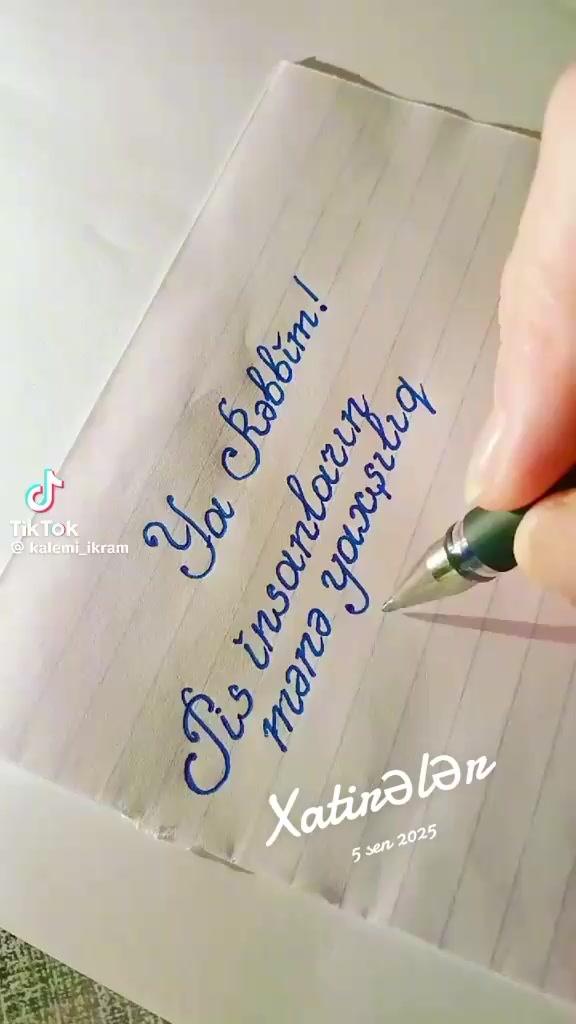 Ya Rəbbim!
Pis insanların
mənə yaxşılıq
TikTok
@ kalemi_ikram
Xatirələr
5 sen 2025